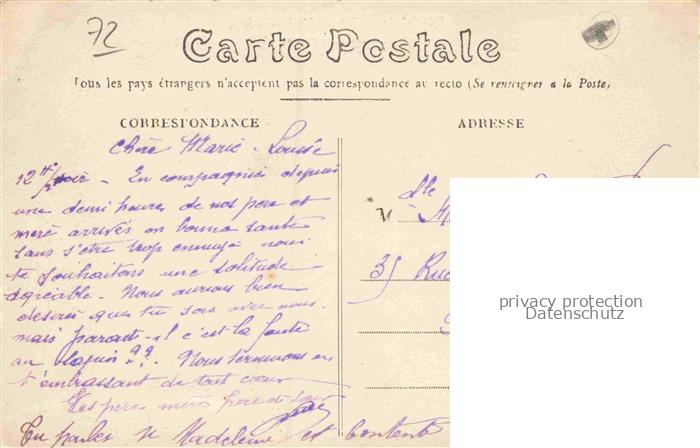 72
Carte Postale
Tous les pays étrangers n'acceptent pas la correspondance au recto (Se renseigner à la Poste)
CORRESPONDANCE
ADRESSE
Chère Marie-Louise
12 H soir - En compagnie depuis
une demi heures de nos pere et
mere arrivés en bonne sante
sans s'etre trop ennuyé nous
te souhaitons une solitude
agréable. Nous aurions bien
desirés que tu sois avec nous
mais parait-il c'est la faute
au lapin ??. Nous terminons en
t'embrassant de tout coeur
Tes pere mere frere et
Tu parles si Madeleine est contente
Mlle
35 Rue
privacy protection
Datenschutz